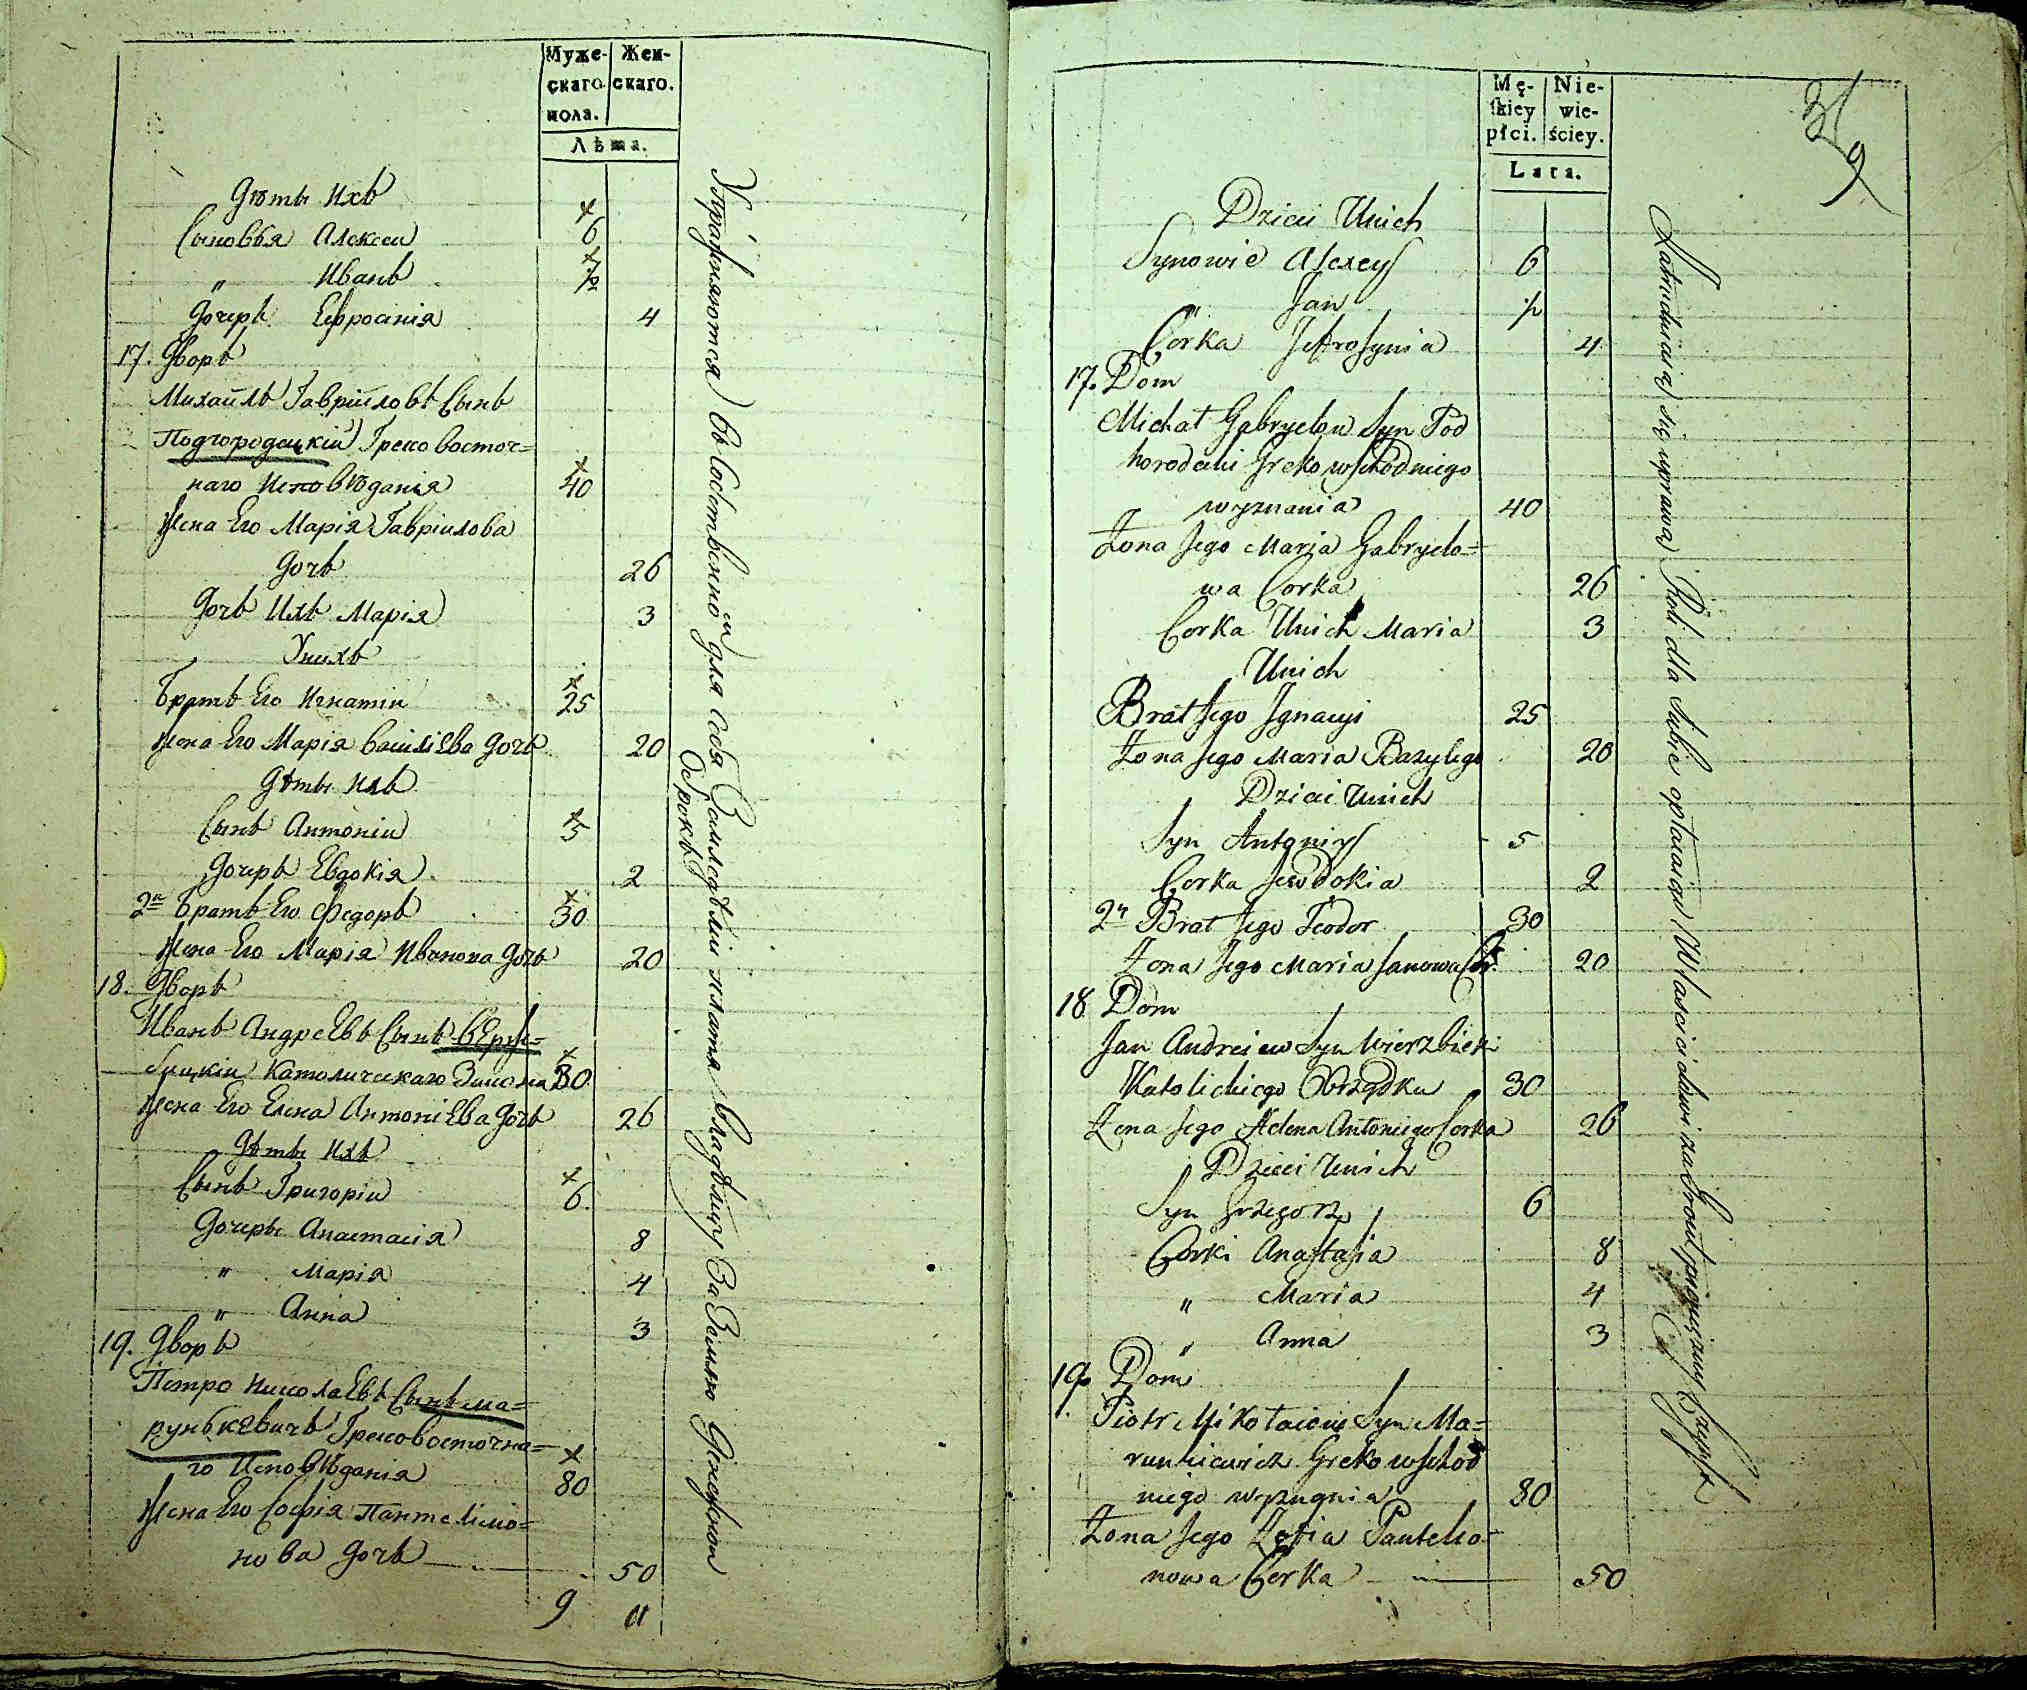 Муже-
скаго
пола.
Жен-
скаго.
Лѣта.
Дѣти Ихъ
Сыновья Алексеи 6
„ Иванъ ½
Дочерь Ефросинія 4
17. Дворъ
Михайлъ Гаврійловъ Сынъ
Подгородецкій Греко восточ=
наго Исповѣданія 40
Жена Его Марія Гавріилова
Дочь 26
Дочь Ихъ Марія 3
Унихъ
Братъ Его Игнатіи 25
Жена Его Марія Василіева Дочь 20
Дѣти Ихъ
Сынъ Антоніи 5
Дочерь Евдокія 2
2й Братъ Его Федоръ 30
Жена Его Марія Иванова Дочь 20
18. Дворъ
Иванъ Андреевъ Сынъ Верж=
бицкіи Католическаго Закона 30
Жена Его Елена Антоніева Дочь 26
Дѣти Ихъ
Сынъ Григоріи 6
Дочеры Анастасія 8
„ Марія 4
„ Анна 3
19. Дворъ
Петро Николаевъ Сынъ Ма=
рунькевичъ Грековосточна=
го Исповѣданія 80
Жена Его Софія Пантелимо=
нова Дочь 50
9 11
Упражняются въ Собственной для себя Земледѣліи платя Владѣлцу За Землю Денежнои
Оброкъ
Mę-
skiey
płci.
Nie-
wie-
ściey.
Lata.
Dzieci Unich
Synowie Alexey 6
„ Jan ½
Corka Jefrosynia 4
17. Dom
Michał Gabryelow Syn Pod
horodecki Greko wschodniego
wyznania 40
Żona Jego Marja Gabryelo=
wa Corka 26
Corka Unich Maria 3
Unich
Brat Jego Jgnacyi 25
Żona Jego Maria Bazylego 20
Dzieci Unich
Syn Antoniy 5
Corka Jewdokia 2
2й Brat Jego Teodor 30
Żona Jego Maria Janowa Cor. 20
18 Dom
Jan Andreiew Syn Wierzbicki
Katolickiego Obrządku 30
Żona Jego Helena Antoniego Corka 26
Dzieci Unich
Syn Grzegorz 6
Corki Anastasia 8
„ Maria 4
„ Anna 3
19. Dom
Piotr Mikołaiow Syn Ma=
runkiewicz Greko wschod
niego wyznania 80
Żona Jego Zofia Pantelio-
nowa Corka 50
Zatrudniaią się uprawą Roli dla siebie opłacaiąc Właścicielowi za Grunt pieniężny Czynsz